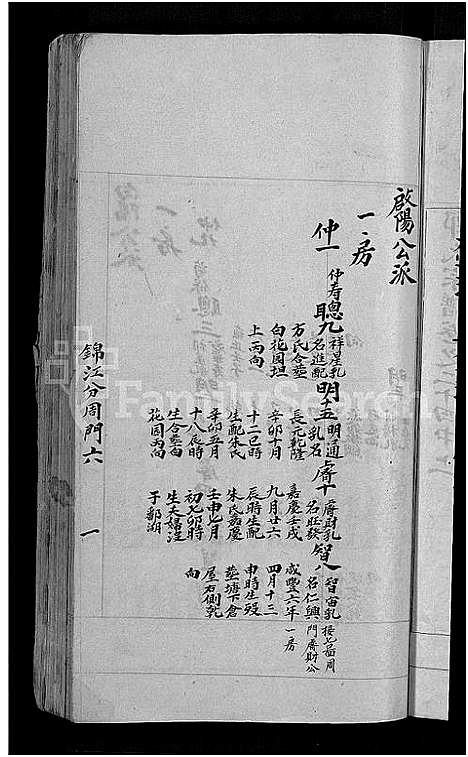 啟陽公派
一房
仲一
仲寿聰九
祥星乳
名進配
方氏合塟
白花園坦
上丙向
明十五
明通
乳名
長元乾隆
辛卯十月
十二巳時
生配朱氏
辛卯五月
十八辰時
生合塟白
花园丙向
睿十
睿財乳
名旺發
嘉慶壬戌
九月廿六
辰時生配
朱氏嘉慶
壬申七月
初七卯時
生夫婦没
于鄱湖
智八
智宙乳
名仁興
咸豐六年
四月十三
申時生殁
塟塘下倉
屋右側乾
向
門睿財公
一房
錦江分周門六
一
FamilySearch